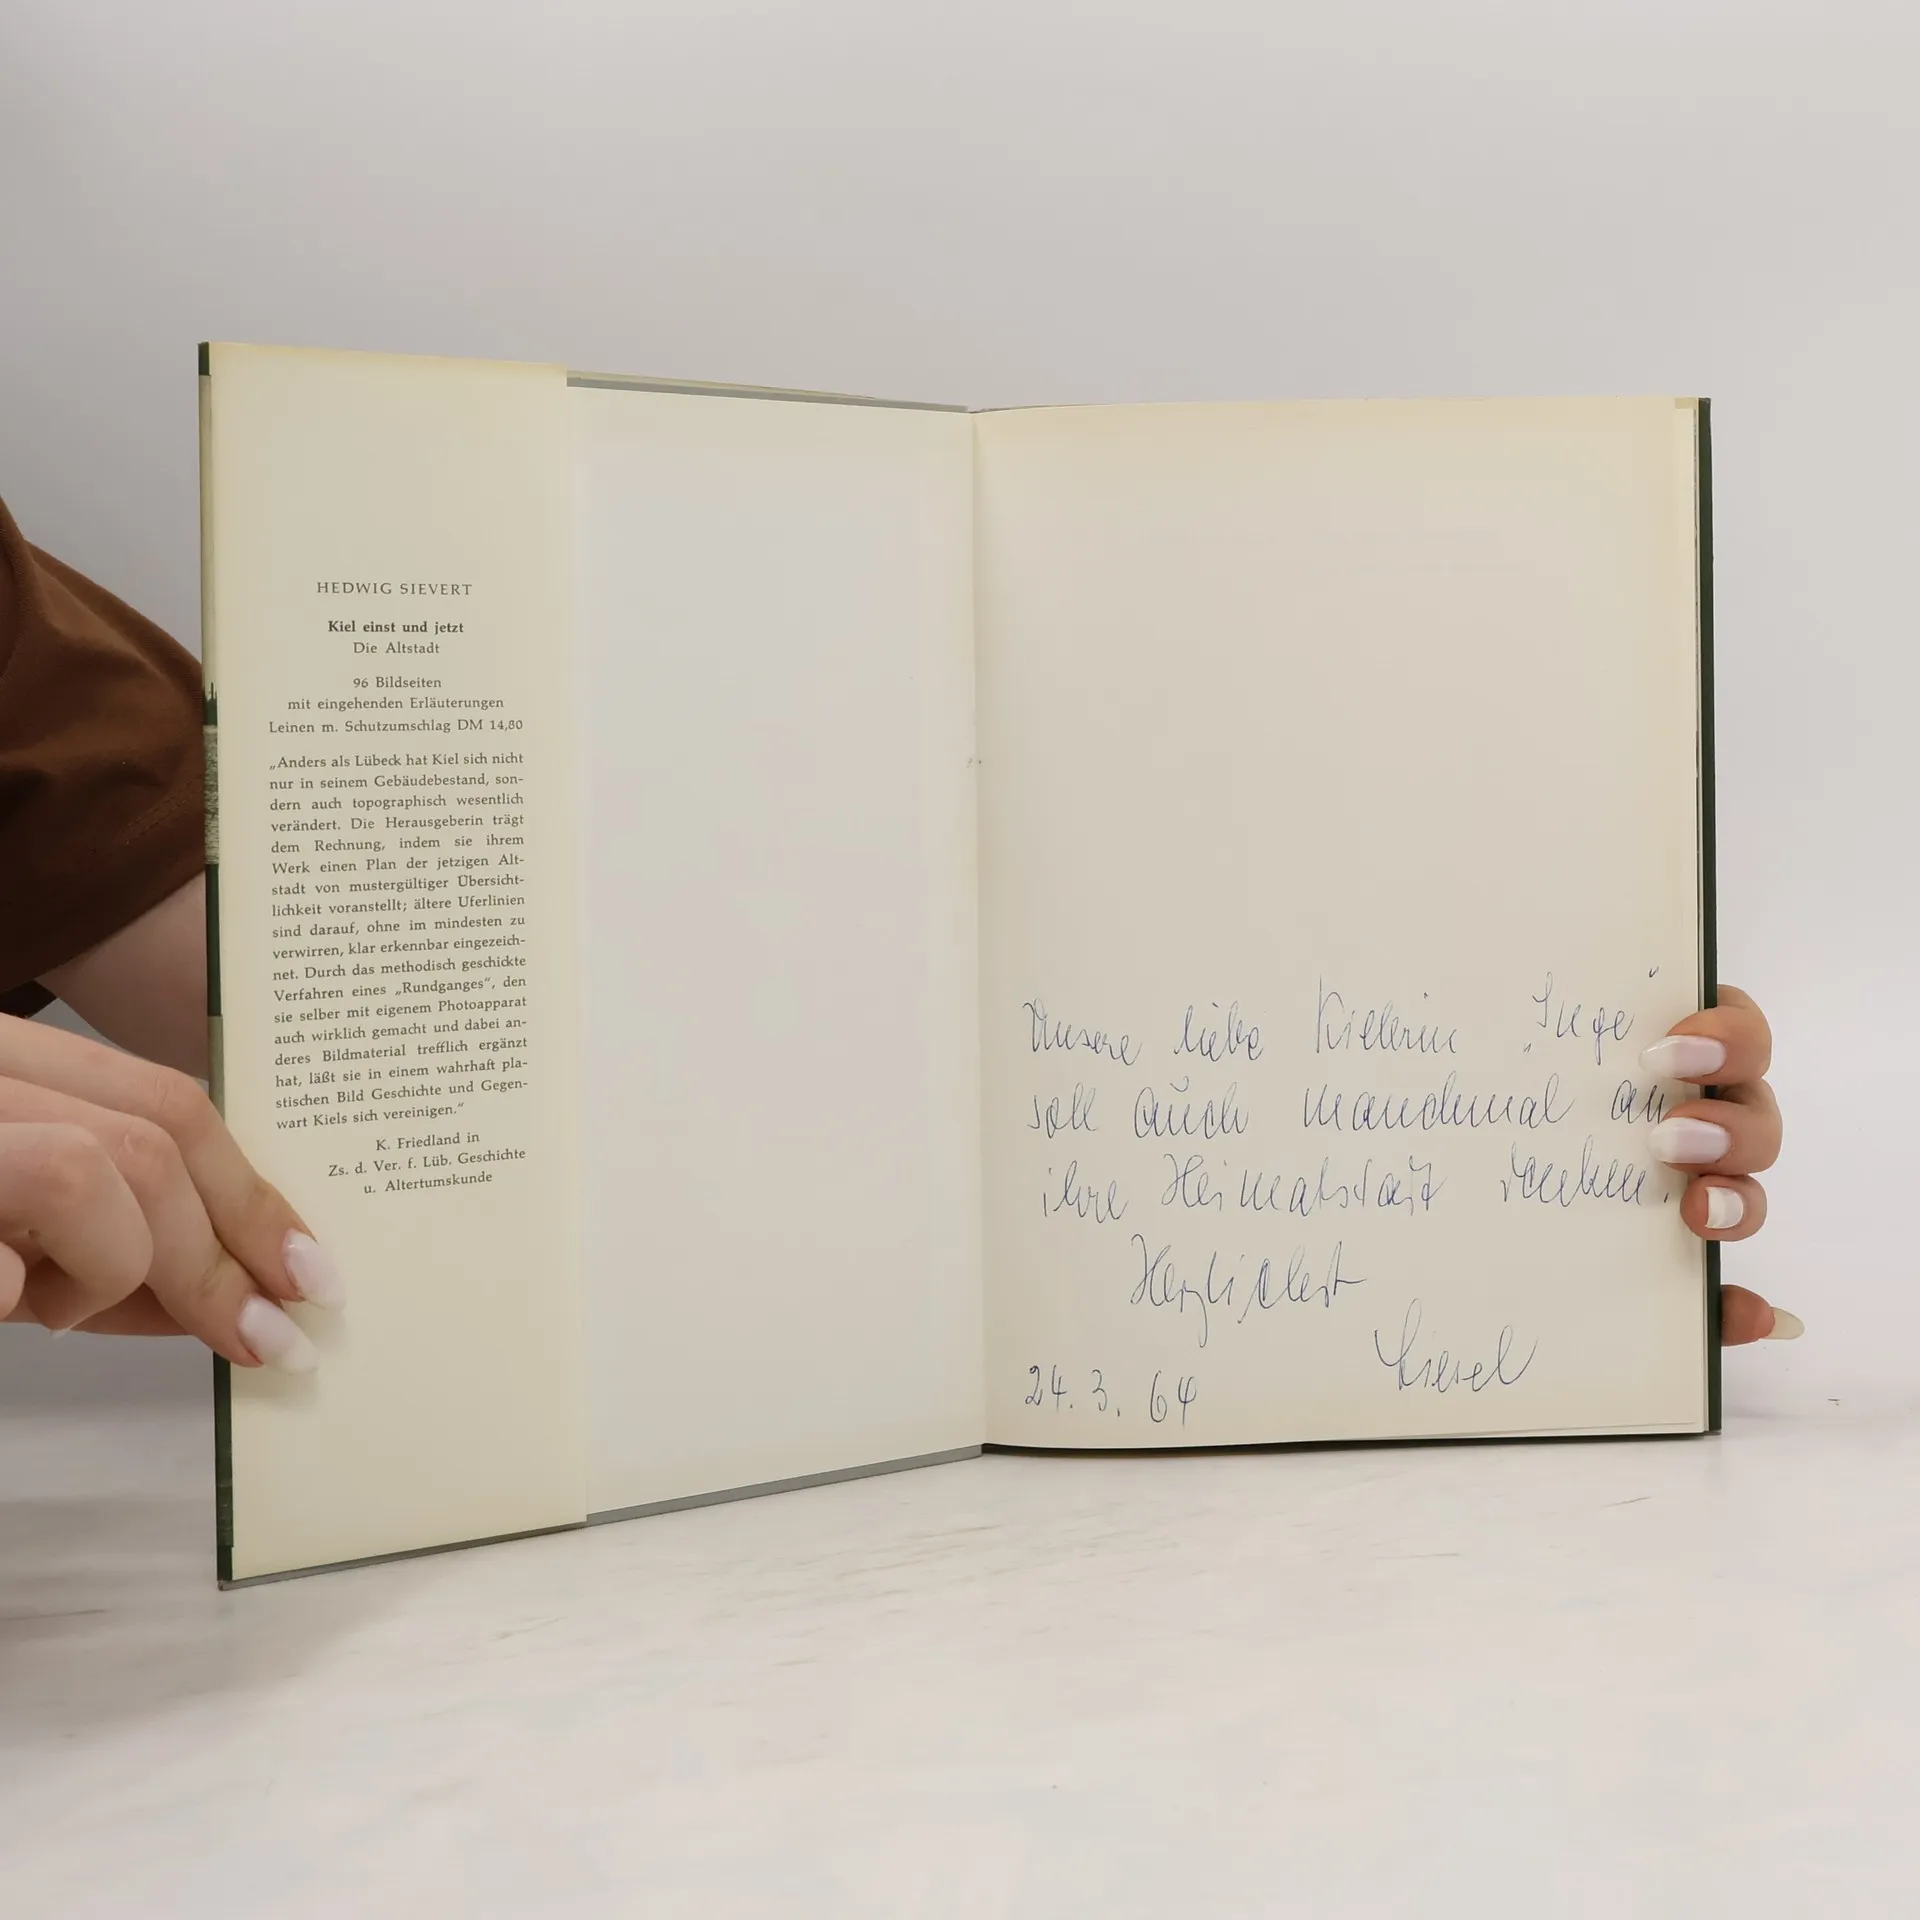 HEDWIG SIEVERT
Kiel einst und jetzt
Die Altstadt
96 Bildseiten
mit eingehenden Erläuterungen
Leinen m. Schutzumschlag DM 14,80
„Anders als Lübeck hat Kiel sich nicht
nur in seinem Gebäudebestand, son-
dern auch topographisch wesentlich
verändert. Die Herausgeberin trägt
dem Rechnung, indem sie ihrem
Werk einen Plan der jetzigen Alt-
stadt von mustergültiger Übersicht-
lichkeit voranstellt; ältere Uferlinien
sind darauf, ohne im mindesten zu
verwirren, klar erkennbar eingezeich-
net. Durch das methodisch geschickte
Verfahren eines „Rundganges“, den
sie selber mit eigenem Photoapparat
auch wirklich gemacht und dabei an-
deres Bildmaterial trefflich ergänzt
hat, läßt sie in einem wahrhaft pla-
stischen Bild Geschichte und Gegen-
wart Kiels sich vereinigen.“
K. Friedland in
Zs. d. Ver. f. Lüb. Geschichte
u. Altertumskunde
Unsere liebe Kielerin „Inge“
soll auch manchmal an
ihre Heimatstadt denken.
Herzlichst
Liesel
24. 3. 64